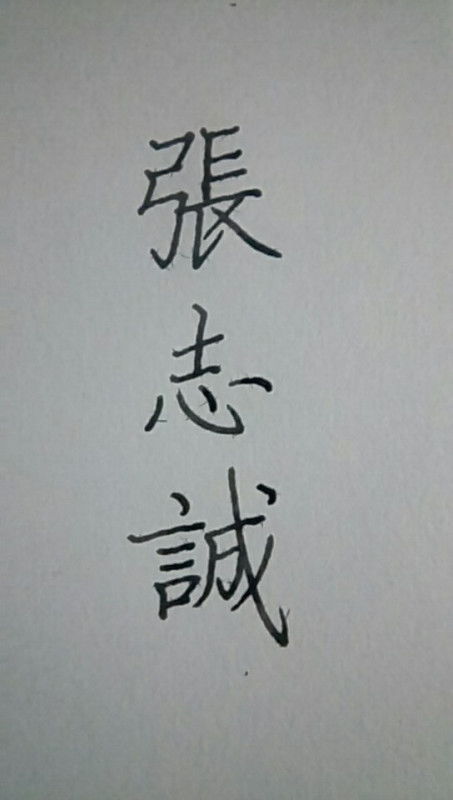 張志誠